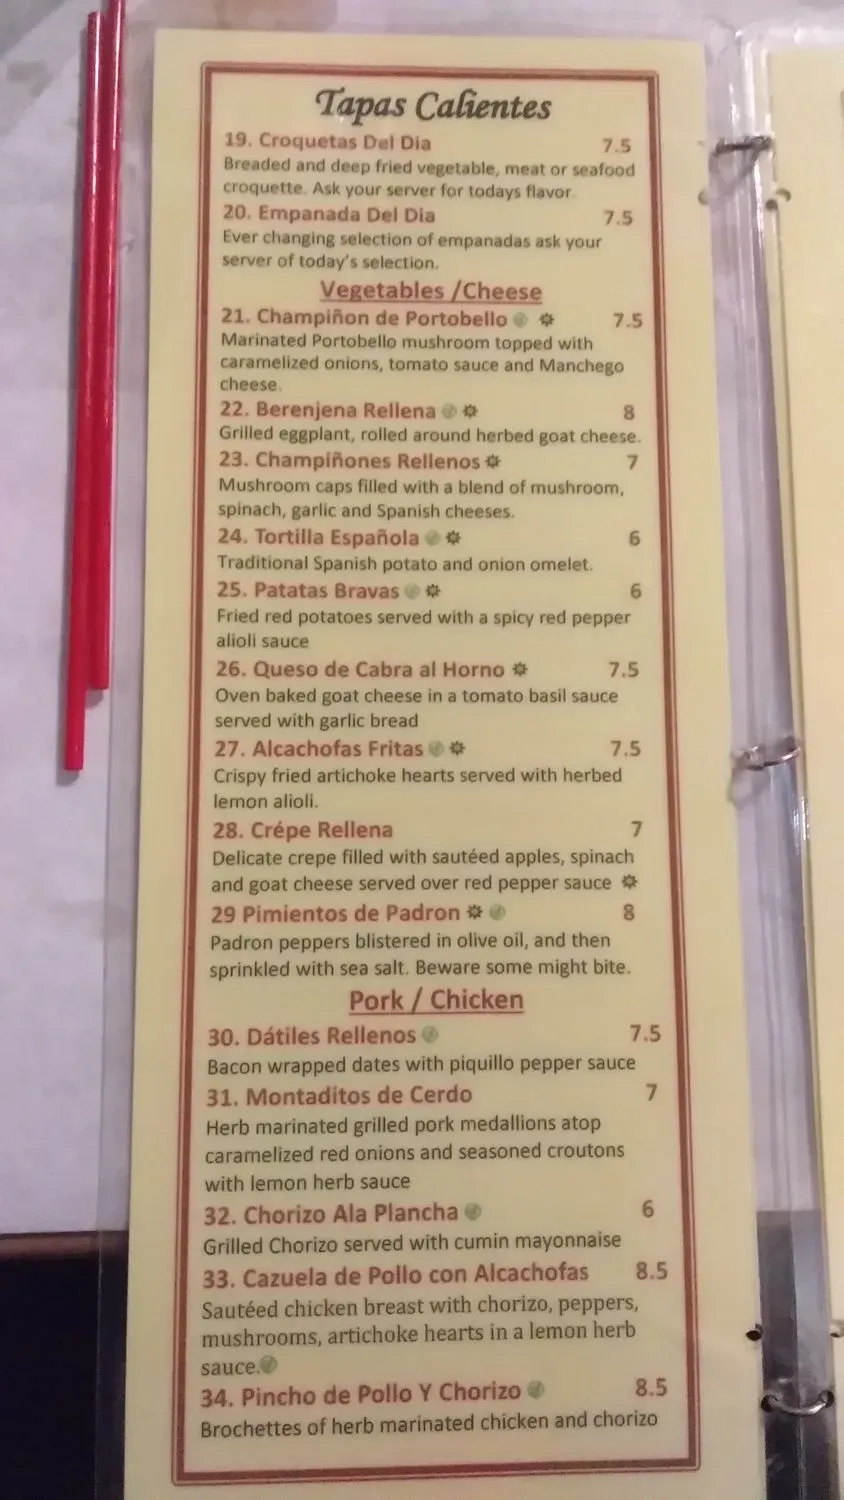 Tapas Calientes
19. Croquetas Del Dia 7.5
Breaded and deep fried vegetable, meat or seafood
croquette. Ask your server for todays flavor.
20. Empanada Del Dia 7.5
Ever changing selection of empanadas ask your
server of today's selection.
Vegetables /Cheese
21. Champiñon de Portobello 7.5
Marinated Portobello mushroom topped with
caramelized onions, tomato sauce and Manchego
cheese.
22. Berenjena Rellena 8
Grilled eggplant, rolled around herbed goat cheese.
23. Champiñones Rellenos 7
Mushroom caps filled with a blend of mushroom,
spinach, garlic and Spanish cheeses.
24. Tortilla Española 6
Traditional Spanish potato and onion omelet.
25. Patatas Bravas 6
Fried red potatoes served with a spicy red pepper
alioli sauce
26. Queso de Cabra al Horno 7.5
Oven baked goat cheese in a tomato basil sauce
served with garlic bread
27. Alcachofas Fritas 7.5
Crispy fried artichoke hearts served with herbed
lemon alioli.
28. Crépe Rellena 7
Delicate crepe filled with sautéed apples, spinach
and goat cheese served over red pepper sauce
29 Pimientos de Padron 8
Padron peppers blistered in olive oil, and then
sprinkled with sea salt. Beware some might bite.
Pork / Chicken
30. Dátiles Rellenos 7.5
Bacon wrapped dates with piquillo pepper sauce
31. Montaditos de Cerdo 7
Herb marinated grilled pork medallions atop
caramelized red onions and seasoned croutons
with lemon herb sauce
32. Chorizo Ala Plancha 6
Grilled Chorizo served with cumin mayonnaise
33. Cazuela de Pollo con Alcachofas 8.5
Sautéed chicken breast with chorizo, peppers,
mushrooms, artichoke hearts in a lemon herb
sauce.
34. Pincho de Pollo Y Chorizo 8.5
Brochettes of herb marinated chicken and chorizo